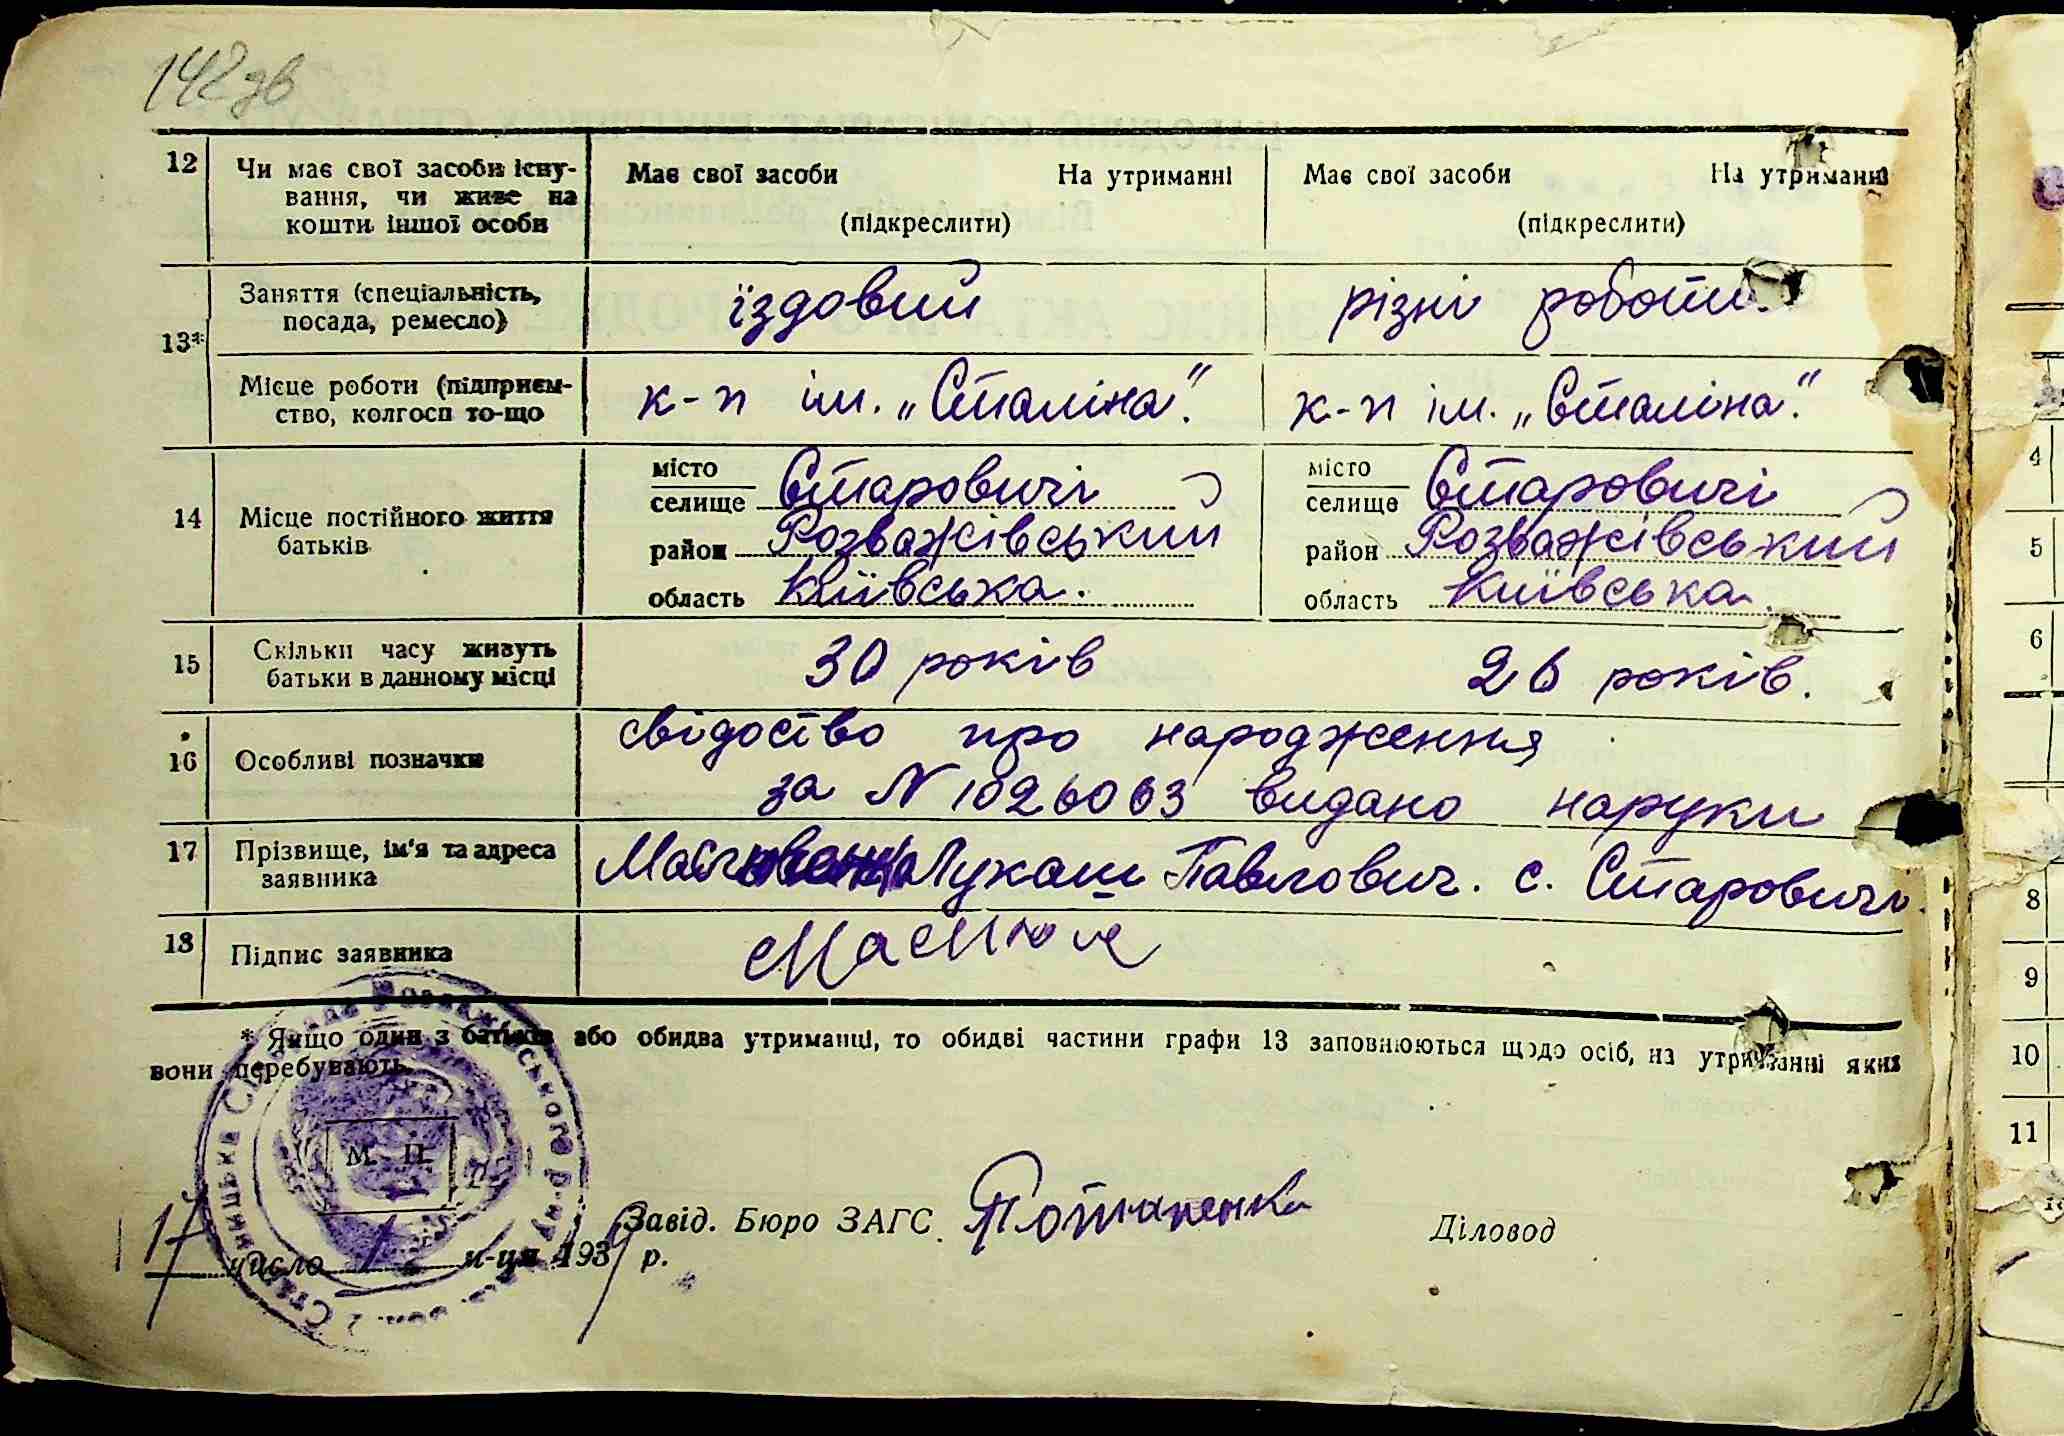 142зв
12 Чи має свої засоби існу- Має свої засоби На утриманні Має свої засоби На утриманні
вання, чи живе на
кошти іншої особи (підкреслити) (підкреслити)
Заняття (спеціальність, їздовий різні роботи.
посада, ремесло)
13*
Місце роботи (підприєм- к-п ім. „Сталіна". к-п ім. „Сталіна".
ство, колгосп то-що
місто Старовичі місто Старовичі
селище селище
14 Місце постійного життя
батьків район Розважівський район Розважівський
область Київська. область Київська.
15 Скільки часу живуть 30 років 26 років.
батьки в данному місці
свідоство про народження
16 Особливі позначки
за N 1026063 видано наруки
17 Прізвище, ім'я та адреса Лукаш Павлович. с. Старовичі.
заявника
18 Підпис заявника
* Якщо один з батьків або обидва утриманці, то обидві частини графи 13 заповнюються щодо осіб, на утриманні яких
вони перебувають.
М. П.
Завід. Бюро ЗАГС Потапенко Діловод
17 число 1 м-ця 1939 р.
4
5
6
8
9
10
11